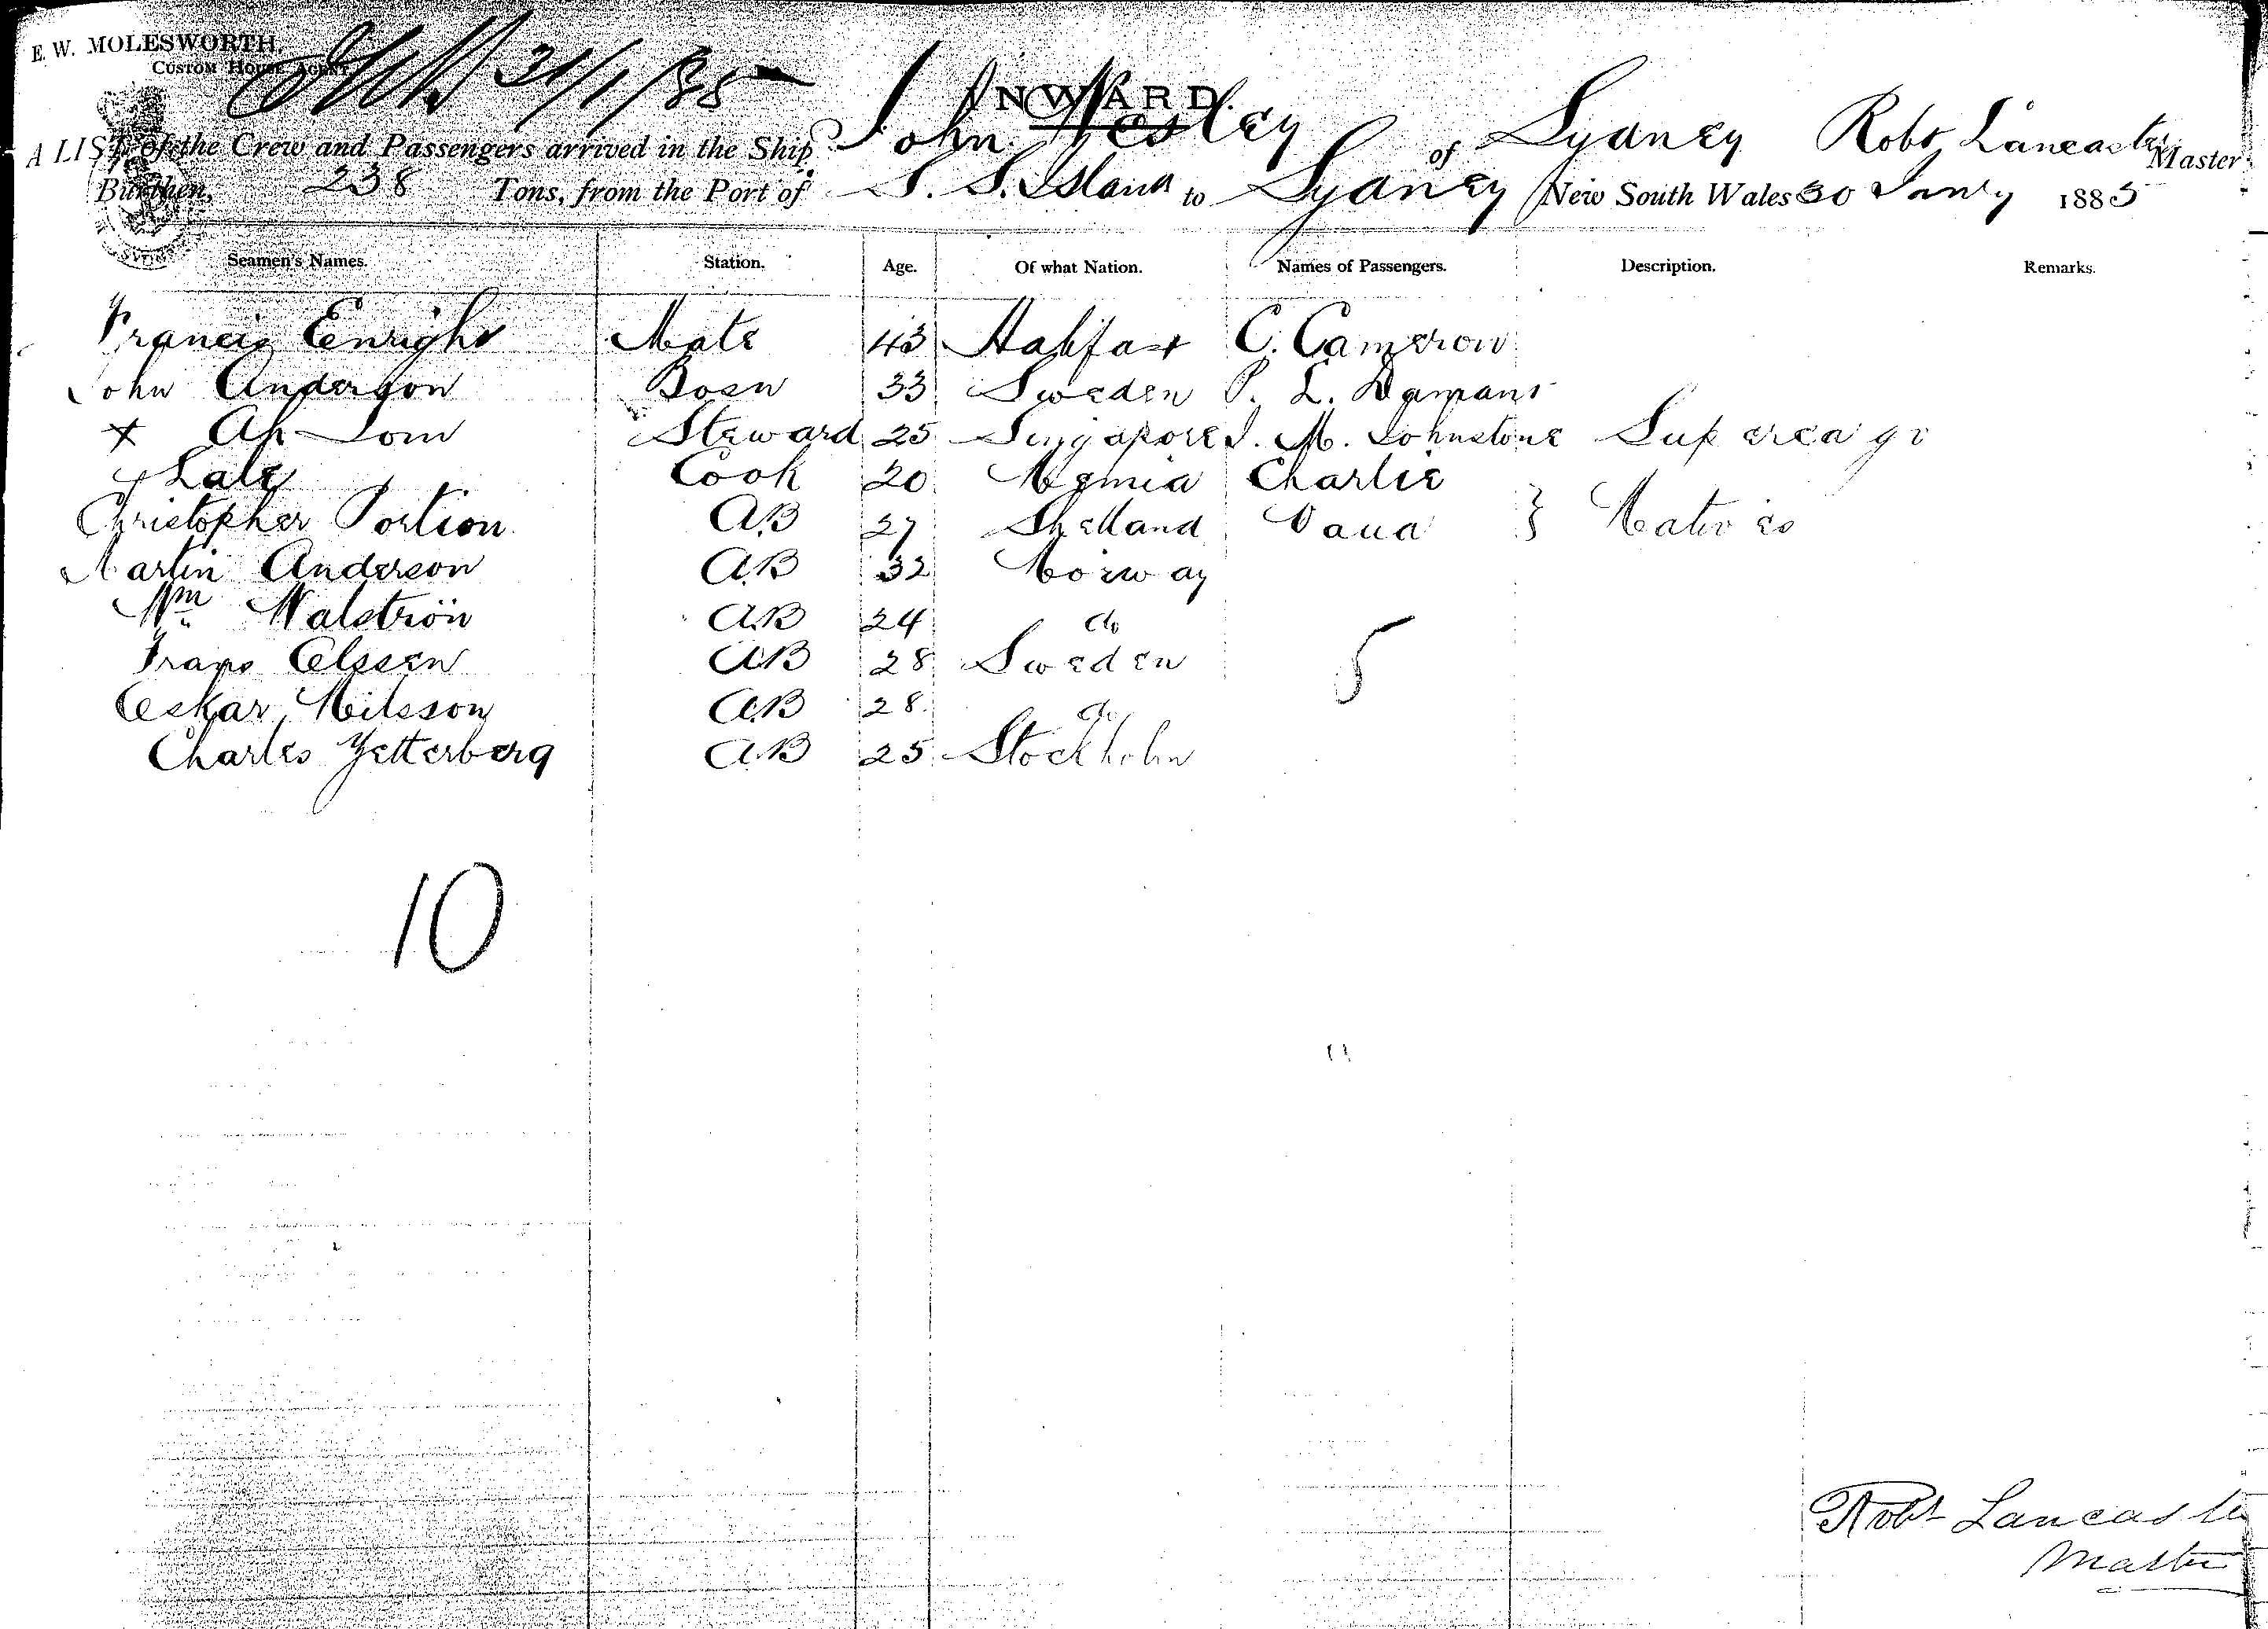 E. W. MOLESWORTH,
CUSTOM HOUSE AGENT.
31/1/85
INWARD.
A LIST of the Crew and Passengers arrived in the Ship John Wesley of Sydney Robt Lancaster Master
Burthen, 238 Tons, from the Port of S. S. Island to Sydney New South Wales 30 Jany 1885
Seamen's Names. Station. Age. Of what Nation. Names of Passengers. Description. Remarks.
Francis Enright Mate 43 Halifax C. Cameron
John Anderson Bosn 33 Sweden P. L. Damans
x Ah Tom Steward 25 Singapore J. M. Johnstone Supercargo
x Lale Cook 20 Charlie
Christopher Portion AB 27 Shetland Vaua } Natives
Martin Anderson AB 32 Norway
Wm Walströn AB 24 do
Frans Olssen AB 28 Sweden
Oskar Nilsson AB 28 do
Charles Zetterberg AB 25 Stockholm
5
10
Robt Lancaster
Master